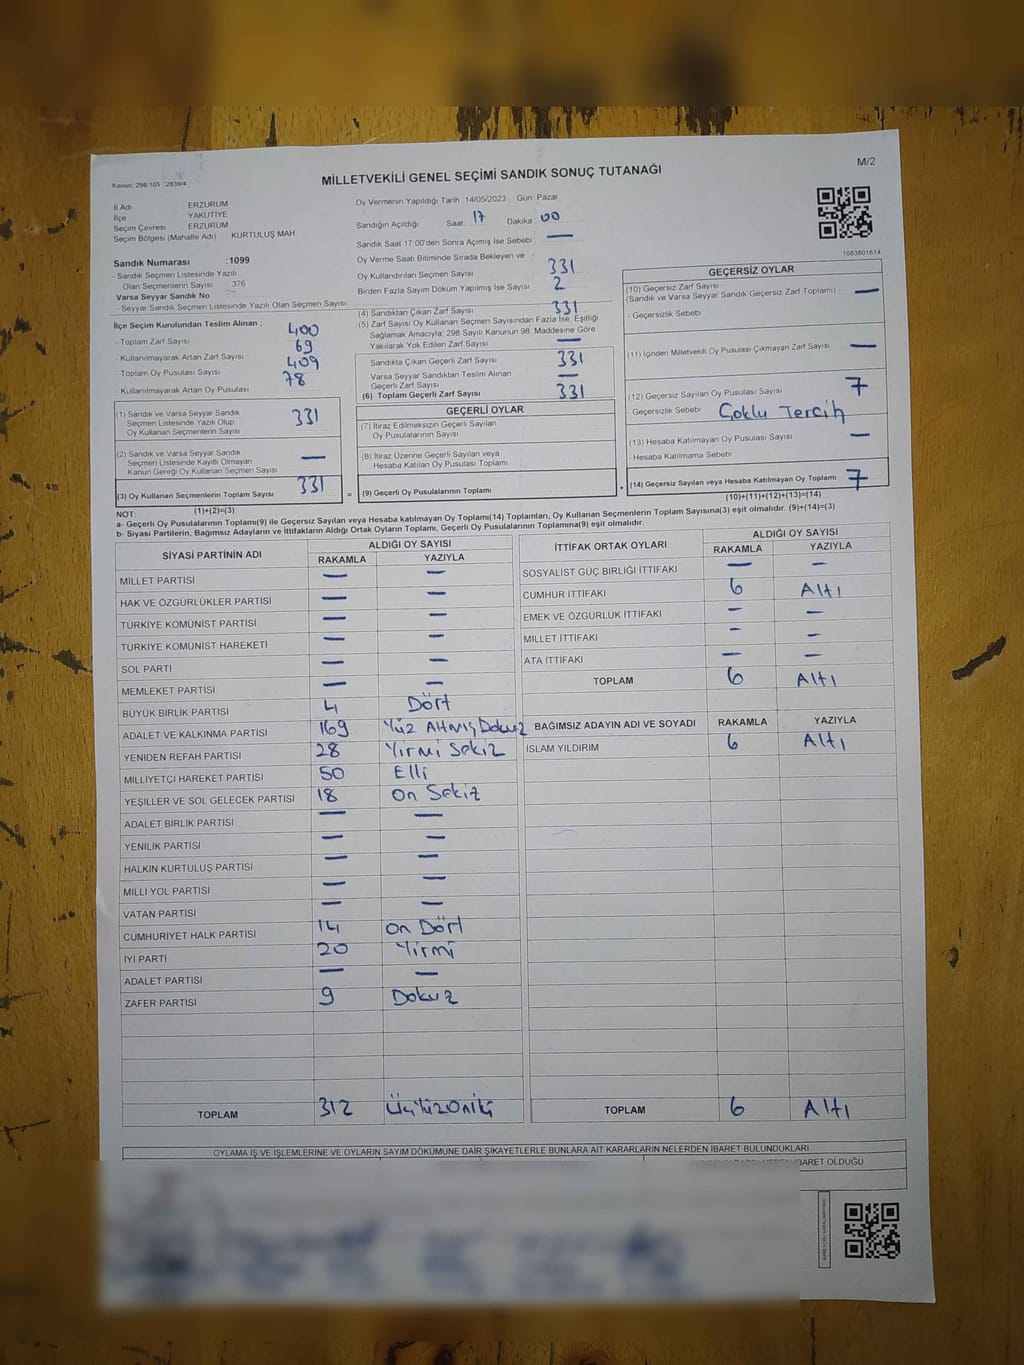 Kanun: 298/105 2839/4
MİLLETVEKİLİ GENEL SEÇİMİ SANDIK SONUÇ TUTANAĞI
M/2
İl Adı ERZURUM
İlçe YAKUTİYE
Seçim Çevresi ERZURUM
Seçim Bölgesi (Mahalle Adı) KURTULUŞ MAH
Sandık Numarası :1099
- Sandık Seçmen Listesinde Yazılı
Olan Seçmenlerin Sayısı : 376
Varsa Seyyar Sandık No :
- Seyyar Sandık Seçmen Listesinde Yazılı Olan Seçmen Sayısı
Oy Vermenin Yapıldığı Tarih :14/05/2023 Gün: Pazar
Sandığın Açıldığı Saat 17 Dakika 00
Sandık Saat 17:00'den Sonra Açımış İse Sebebi —
Oy Verme Saati Bitiminde Sırada Bekleyen ve :
Oy Kullandırılan Seçmen Sayısı 331
Birden Fazla Sayım Döküm Yapılmış İse Sayısı 2
1083801614
İlçe Seçim Kurulundan Teslim Alınan ;
- Toplam Zarf Sayısı 400
- Kullanılmayarak Artan Zarf Sayısı 69
- Toplam Oy Pusulası Sayısı 409
- Kullanılmayarak Artan Oy Pusulası 78
(1) Sandık ve Varsa Seyyar Sandık
Seçmen Listesinde Yazılı Olup
Oy Kullanan Seçmenlerin Sayısı 331
(2) Sandık ve Varsa Seyyar Sandık
Seçmen Listesinde Kayıtlı Olmayan
Kanun Gereği Oy Kullanan Seçmen Sayısı —
(3) Oy Kullanan Seçmenlerin Toplam Sayısı 331
(1)+(2)=(3)
(4) Sandıktan Çıkan Zarf Sayısı 331
(5) Zarf Sayısı Oy Kullanan Seçmen Sayısından Fazla İse; Eşitliği
Sağlamak Amacıyla, 298 Sayılı Kanunun 98. Maddesine Göre
Yakılarak Yok Edilen Zarf Sayısı —
Sandıkta Çıkan Geçerli Zarf Sayısı 331
Varsa Seyyar Sandıktan Teslim Alınan
Geçerli Zarf Sayısı —
(6) Toplam Geçerli Zarf Sayısı 331
GEÇERLİ OYLAR
(7) İtiraz Edilmeksizin Geçerli Sayılan
Oy Pusulalarının Sayısı
(8) İtiraz Üzerine Geçerli Sayılan veya
Hesaba Katılan Oy Pusulası Toplamı
= (9) Geçerli Oy Pusulalarının Toplamı
GEÇERSİZ OYLAR
(10) Geçersiz Zarf Sayısı
(Sandık ve Varsa Seyyar Sandık Geçersiz Zarf Toplamı) —
- Geçersizlik Sebebi
(11) İçinden Milletvekili Oy Pusulası Çıkmayan Zarf Sayısı —
(12) Geçersiz Sayılan Oy Pusulası Sayısı 7
- Geçersizlik Sebebi Çoklu Tercih
(13) Hesaba Katılmayan Oy Pusulası Sayısı —
- Hesaba Katılmama Sebebi
+ (14) Geçersiz Sayılan veya Hesaba Katılmayan Oy Toplamı 7
(10)+(11)+(12)+(13)=(14)
NOT:
a- Geçerli Oy Pusulalarının Toplamı(9) ile Geçersiz Sayılan veya Hesaba katılmayan Oy Toplamı(14) Toplamları, Oy Kullanan Seçmenlerin Toplam Sayısına(3) eşit olmalıdır. (9)+(14)=(3)
b- Siyasi Partilerin, Bağımsız Adayların ve İttifakların Aldığı Ortak Oyların Toplamı, Geçerli Oy Pusulalarının Toplamına(9) eşit olmalıdır.
SİYASİ PARTİNİN ADI ALDIĞI OY SAYISI
RAKAMLA YAZIYLA
MİLLET PARTİSİ — —
HAK VE ÖZGÜRLÜKLER PARTİSİ — —
TÜRKİYE KOMÜNİST PARTİSİ — —
TÜRKİYE KOMÜNİST HAREKETİ — —
SOL PARTİ — —
MEMLEKET PARTİSİ — —
BÜYÜK BİRLİK PARTİSİ 4 Dört
ADALET VE KALKINMA PARTİSİ 169 Yüz Altmış Dokuz
YENİDEN REFAH PARTİSİ 28 Yirmi Sekiz
MİLLİYETÇİ HAREKET PARTİSİ 50 Elli
YEŞİLLER VE SOL GELECEK PARTİSİ 18 On Sekiz
ADALET BİRLİK PARTİSİ — —
YENİLİK PARTİSİ — —
HALKIN KURTULUŞ PARTİSİ — —
MİLLİ YOL PARTİSİ — —
VATAN PARTİSİ — —
CUMHURİYET HALK PARTİSİ 14 On Dört
İYİ PARTİ 20 Yirmi
ADALET PARTİSİ — —
ZAFER PARTİSİ 9 Dokuz
TOPLAM 312 ÜçYüzOniki
İTTİFAK ORTAK OYLARI ALDIĞI OY SAYISI
RAKAMLA YAZIYLA
SOSYALİST GÜÇ BİRLİĞİ İTTİFAKI — —
CUMHUR İTTİFAKI 6 Altı
EMEK VE ÖZGÜRLÜK İTTİFAKI — —
MİLLET İTTİFAKI — —
ATA İTTİFAKI — —
TOPLAM 6 Altı
BAĞIMSIZ ADAYIN ADI VE SOYADI RAKAMLA YAZIYLA
İSLAM YILDIRIM 6 Altı
TOPLAM 6 Altı
OYLAMA İŞ VE İŞLEMLERİNE VE OYLARIN SAYIM DÖKÜMÜNE DAİR ŞİKAYETLERLE BUNLARA AİT KARARLARIN NELERDEN İBARET BULUNDUKLARI
İBARET OLDUĞU